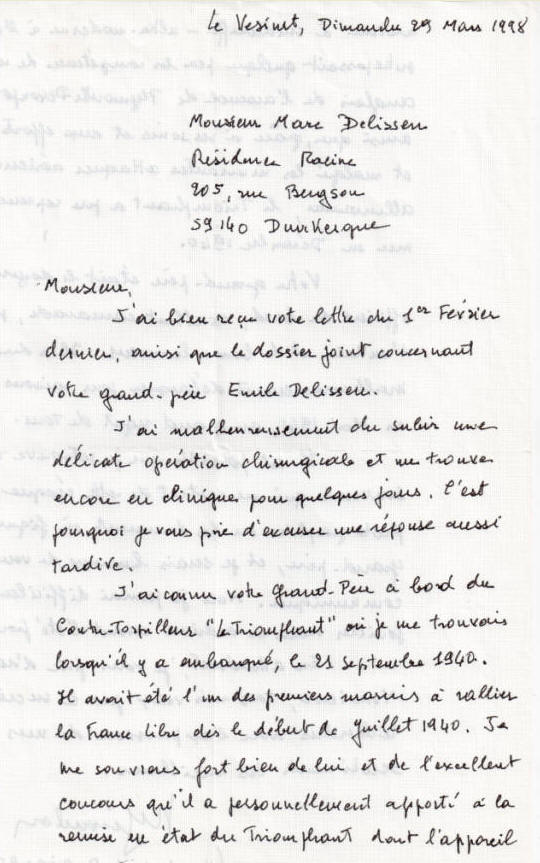 Le Vesinet, Dimanche 29 Mars 1998
Monsieur Marc Delissen
Résidence Racine
205, rue Bergson
59140 Dunkerque
Monsieur,
J'ai bien reçu votre lettre du 1er Février
dernier, ainsi que le dossier joint concernant
votre grand-père Emile Delissen.
J'ai malheureusement du subir une
délicate opération chirurgicale et me trouve
encore en clinique pour quelques jours. C'est
pourquoi je vous prie d'excuser une réponse aussi
tardive.
J'ai connu votre Grand-Père à bord du
Contre-Torpilleur "Le Triomphant" où je me trouvais
lorsqu'il y a embarqué, le 21 septembre 1940.
Il avait été l'un des premiers marins à rallier
la France Libre dès le début de Juillet 1940. Je
me souviens fort bien de lui et de l'excellent
concours qu'il a personnellement apporté à la
remise en état du Triomphant dont l'appareil